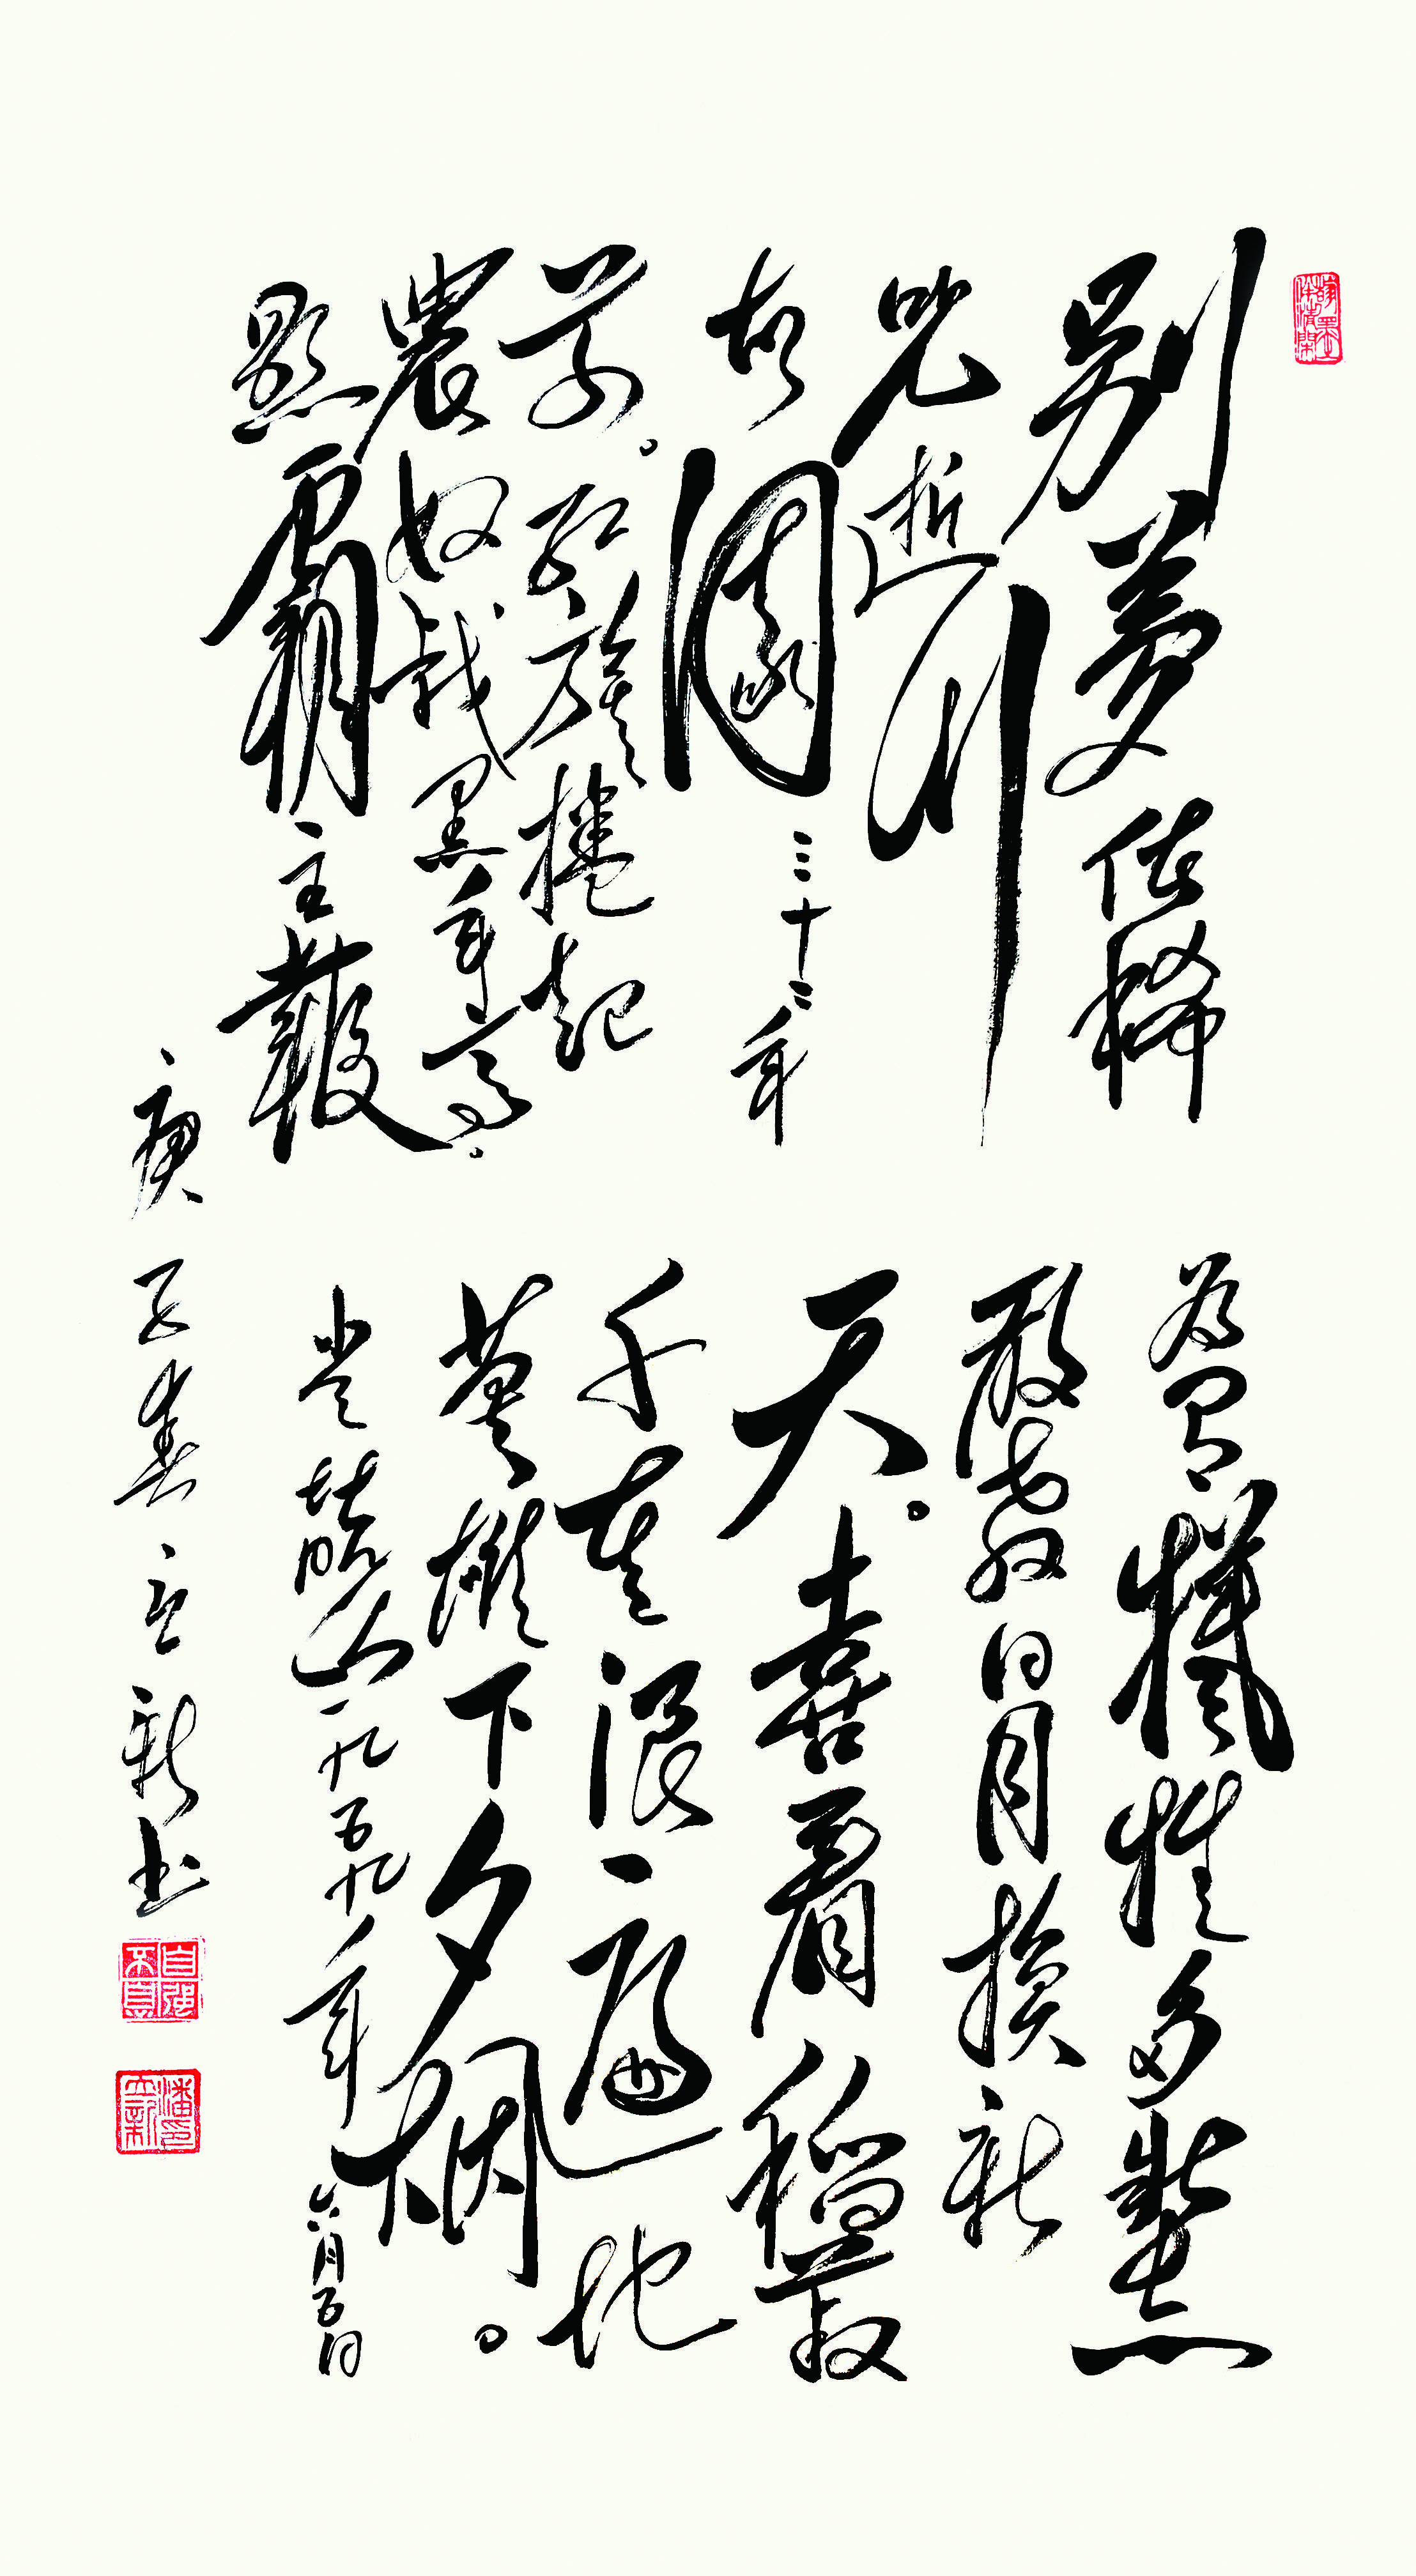 别梦依稀
咒逝川
故园三十二年
前。红旗捲起
農奴戟黑手高。
悬霸主鞭
为有犧牲多壮志
敢教日月换新
天。喜看稻菽
千重浪、遍地
英雄下夕烟。
韶山一九五九年六月五日
庚子春立新书
自强不息
潘立新印